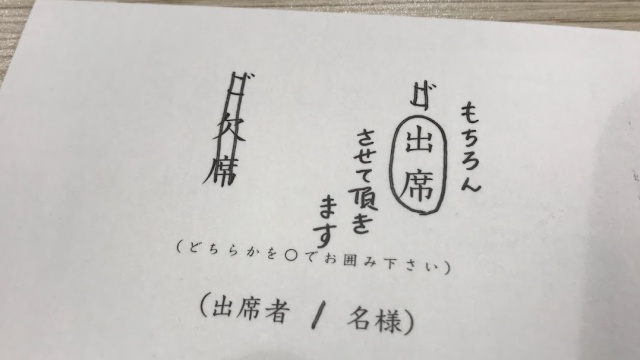 もちろん
ご出席
させて頂き
ます
ご欠席
(どちらかを〇でお囲み下さい)
(出席者 1 名様)